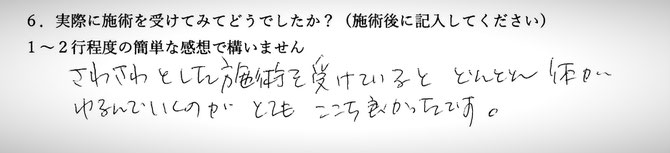 6．実際に施術を受けてみてどうでしたか？（施術後に記入してください）
1～2行程度の簡単な感想で構いません
さわさわとした施術を受けていると どんどん 体が
ゆるんでいくのが とても ここち良かったです。